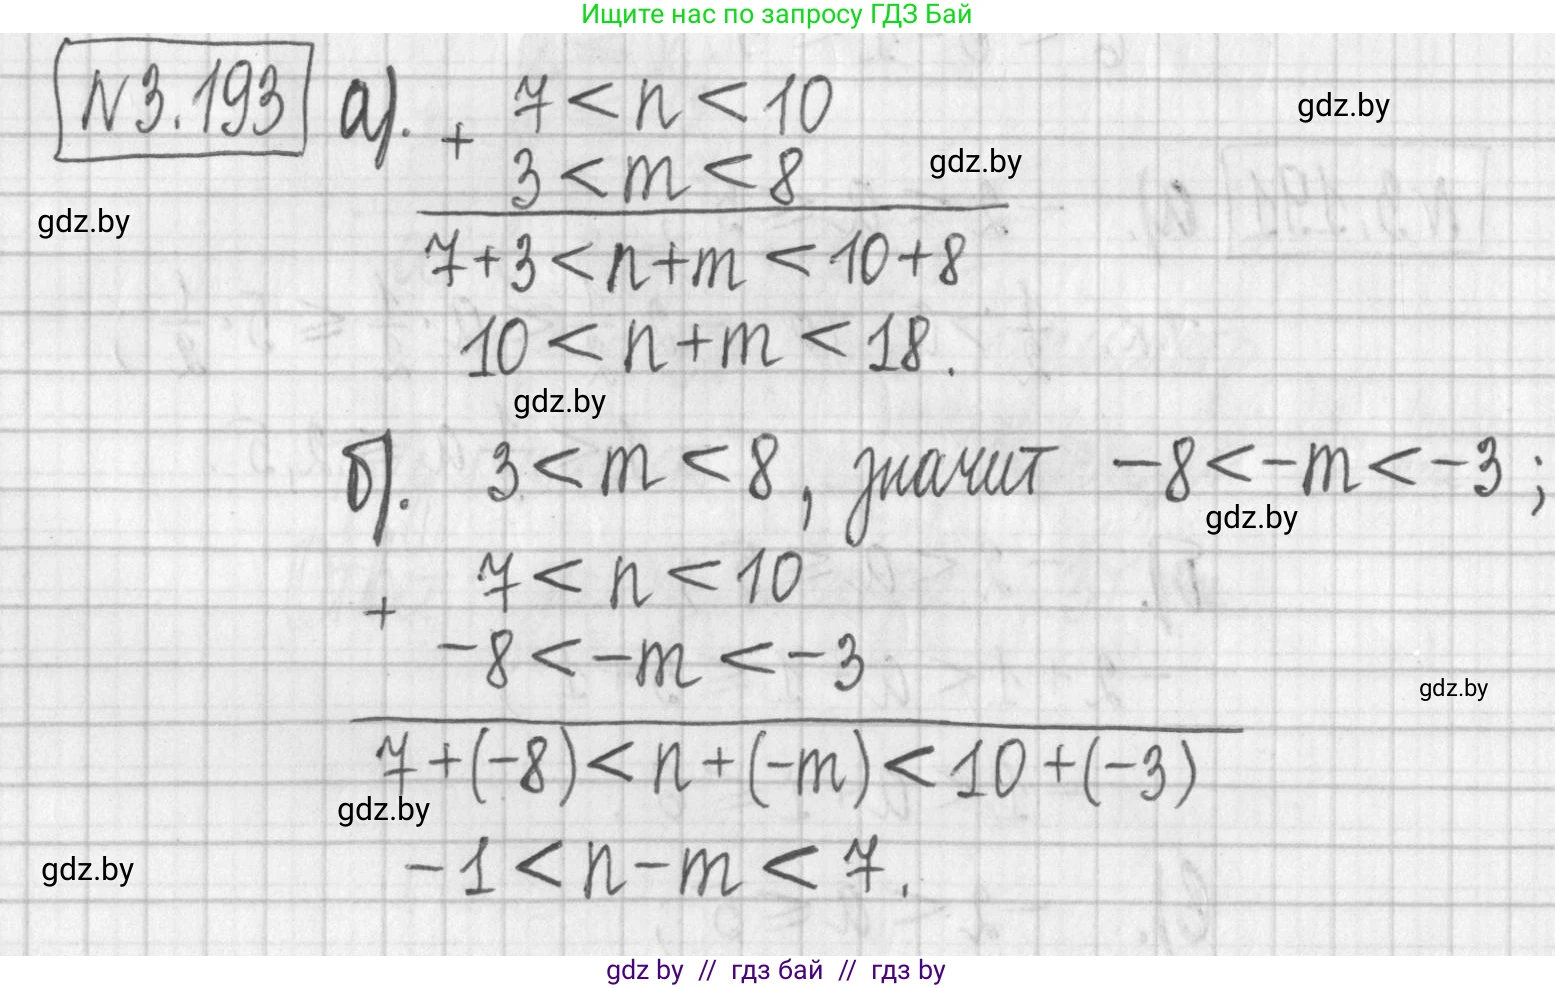 Ищите нас по запросу ГДЗ Бай
N3.193 а). 7 < n < 10
gdz.by
+
3 < m < 8
gdz.by
gdz.by
7+3 < n+m < 10+8
10 < n+m < 18.
gdz.by
б). 3 < m < 8, значит -8 < -m < -3;
gdz.by
7 < n < 10
+
-8 < -m < -3
gdz.by
7+(-8) < n+(-m) < 10+(-3)
gdz.by
-1 < n-m < 7.
gdz.by
gdz by // гдз бай // гдз by